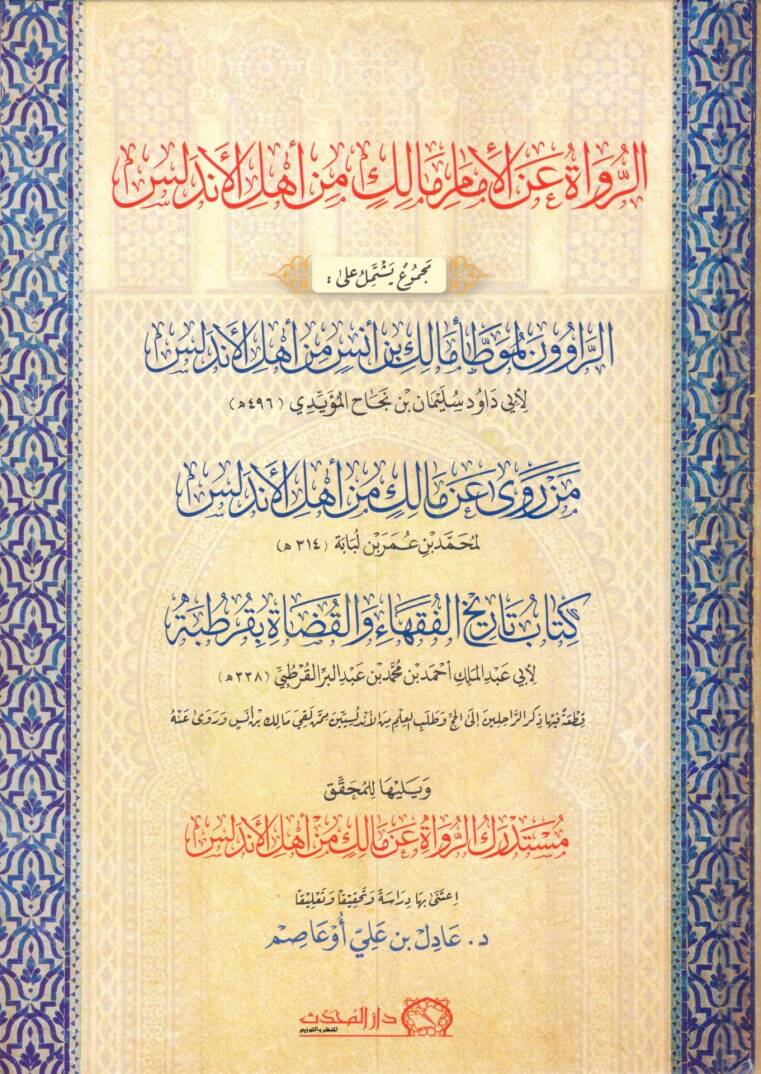 الرُّوَاةُ عَنِ الْأَمَامِ مَالِكٍ مِنْ أَهْلِ الْأَنْدَلُسِ
مَجْمُوعٌ يَشْتَمِلُ عَلَى :
الرَّاوُونَ لِمُوَطَّأِ مَالِكِ بْنِ أَنَسٍ مِنْ أَهْلِ الْأَنْدَلُسِ
لِأَبِي دَاوُد سُلَيْمَان بْن نَجَاح المُؤَيَّدِي (٤٩٦ه)
مَنْ رَوَى عَنْ مَالِكٍ مِنْ أَهْلِ الْأَنْدَلُسِ
لمُحَمَّد بْنِ عُمَر بْن لُبَابَة (٣١٤ ه)
كِتَابُ تَارِيخِ الفُقَهَاءِ وَالقُضَاةِ بِقُرْطُبَةَ
لِأَبِي عَبْدِ المَلِك أَحْمَد بْن مُحَمَّد بْن عَبْدِ البَرِّ القُرْطُبِيِّ (٣٣٨ه)
قِطْعَةٌ فِيهَا ذِكْرُ الرَّاحِلِينَ إِلَى الحَجِّ وَطَلَبِ العِلْمِ مِنَ الأَنْدَلُسِيِّينَ مِمَّنْ لَقِيَ مَالِك بْن أَنَسٍ وَرَوَى عَنْهُ
وَيَلِيْهَا لِلْمُحَقِّقِ
مُسْتَدْرَكُ الرُّوَاةُ عَنْ مَالِكٍ مِنْ أَهْلِ الْأَنْدَلُسِ
اِعْتَنَى بِهَا دِرَاسَةً وَتَحْقِيْقًا وَتَعْلِيْقًا
د. عَادِل بن عَلِيّ أُوعَاصِم
دار المحدث
للنشر والتوزيع